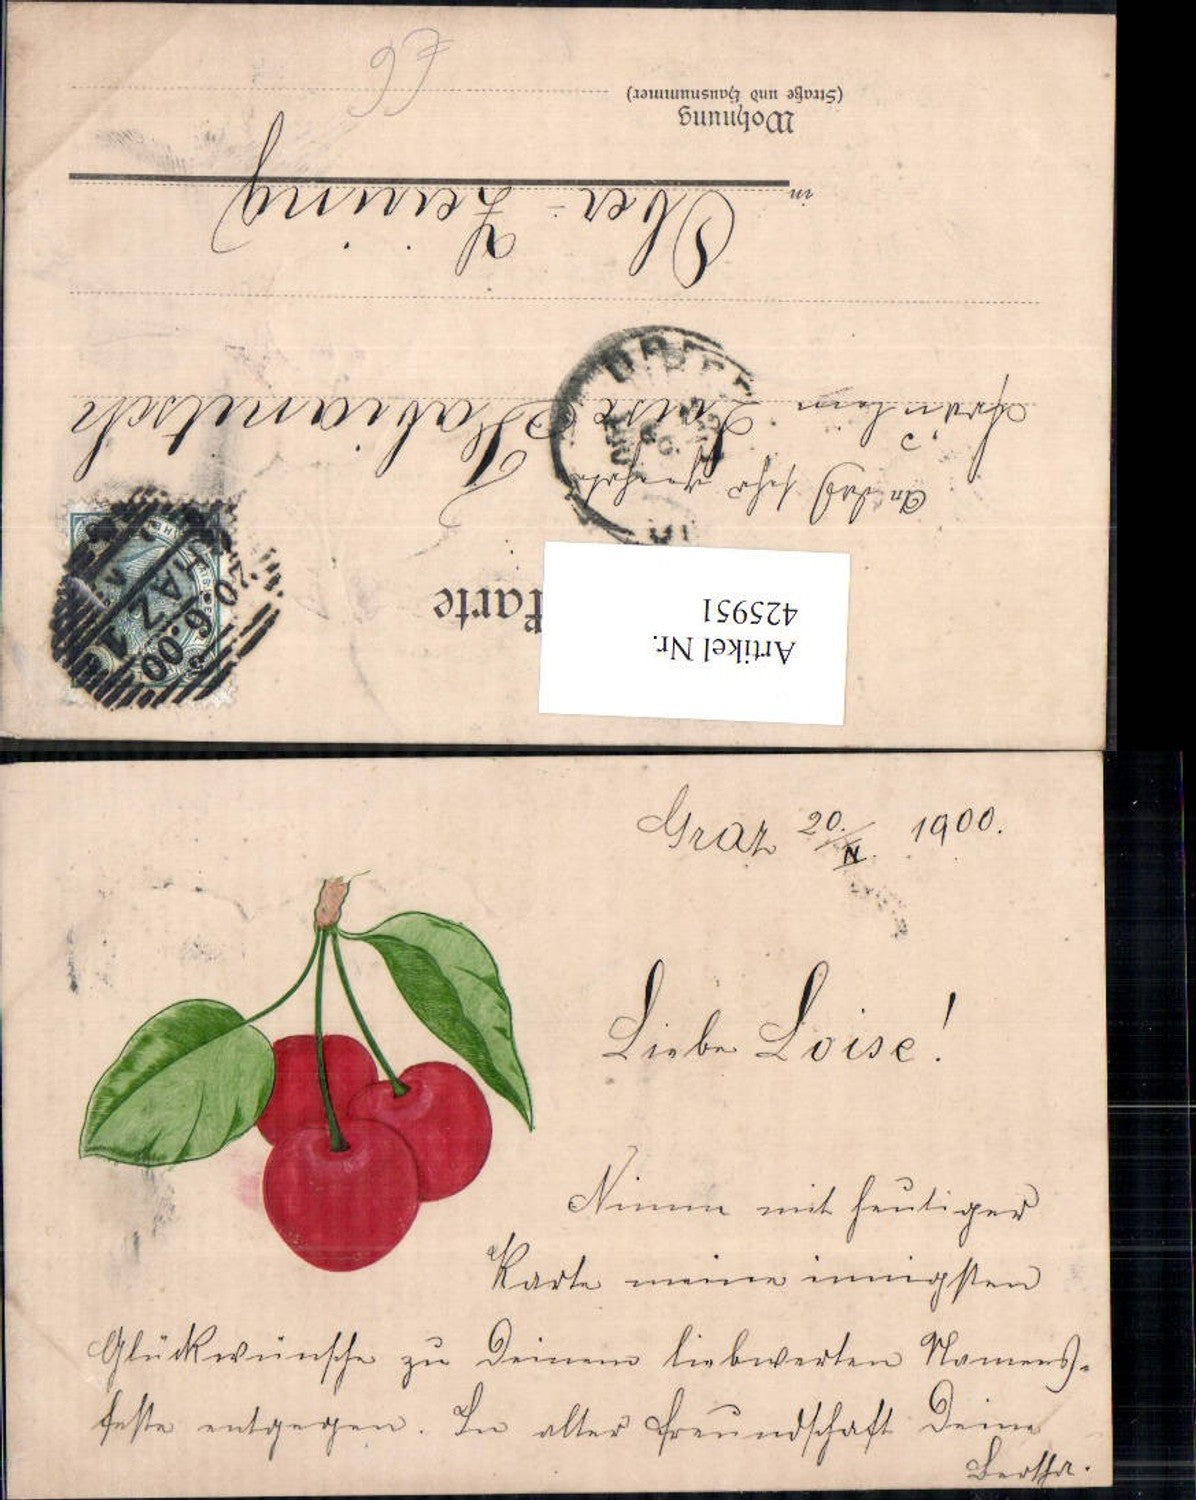 Karte
Artikel Nr.
425951
Fräulein Loise
in Ober-Zeiring
Wohnung
(Straße und Hausnummer)
97
GRAZ 1
20
6.00
Graz 20./IV. 1900.
Liebe Loise!
Nimm mit heutiger
Karte meine innigsten
Glückwünsche zu Deinem liebwerten Namens-
feste entgegen. In alter Freundschaft Deine
Bertha.